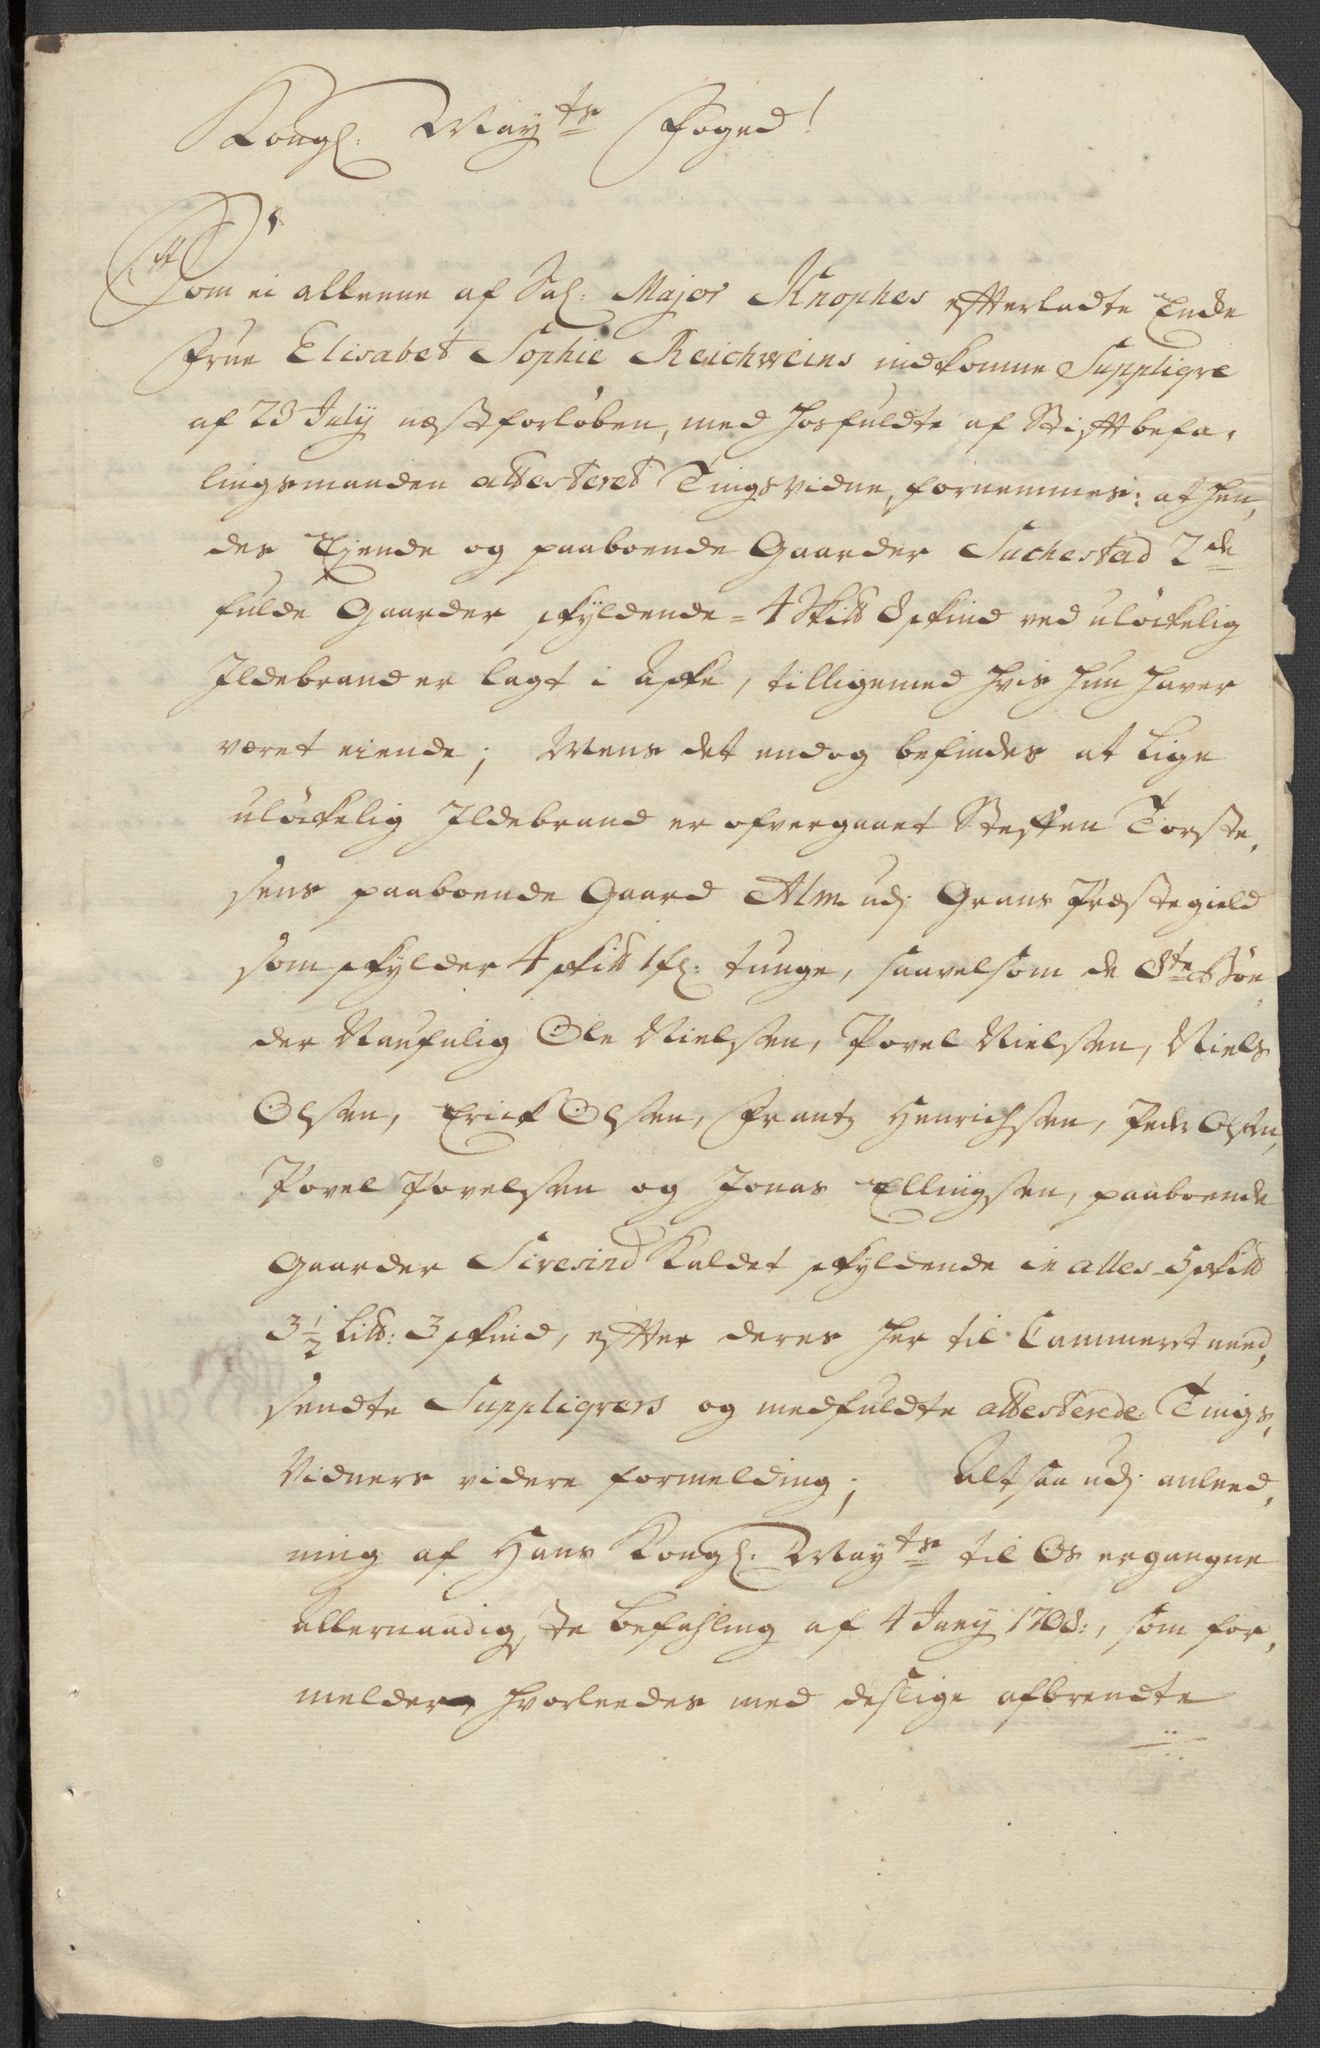 Kongl: May:ts Foged!
Som ei alleene af Sal: Major Knophes efterladte Encke
Frue Elisabet Sophie Reichweins indkomne Suppliqve
af 23 July næstforløben, med hosfuldte af Stiftbefa,
lingsmanden attesteret Tingsvidne, fornemmes: at hen,
des Ejende og paaboende Gaarder Suchestad 2de
fulde Gaarder skyldende = 4 Skittd 8 skind ved uløckelig
Ildebrand er lagt i Aske, tilligemed hvis hun haver
været eiende; Mens det endog befindes at lige
uløckelig Ildebrand er ofvergaaet Steffen Torste,
sens paaboende Gaard Alm udj Grans Præstegield
som skylder 4 skitt 1 fl: tunge, saavelsom de 8te Bøn
der Naufnlig Ole Nielsen, Povel Nielsen, Niels
Olsen, Erick Olsen, Frantz Henrichsen, Peder Olsen,
Povel Povelsen og Jonas Ellingsen, paaboende
Gaarder Sivesind kaldet skyldende in alles 5 skitt
3½ Litt: 3 skind, efter deres her til Cammeret need,
sendte Suppliqvers og medfuldte attesterede Tings,
Vidners videre formelding; Alt saa udj anleed,
ning af Hans Kongl: May:ts til Os ergangne
Allernaadigste befahling af 4 Juny 1708:, som for,
melder, hvorleedes med deslige afbrendte